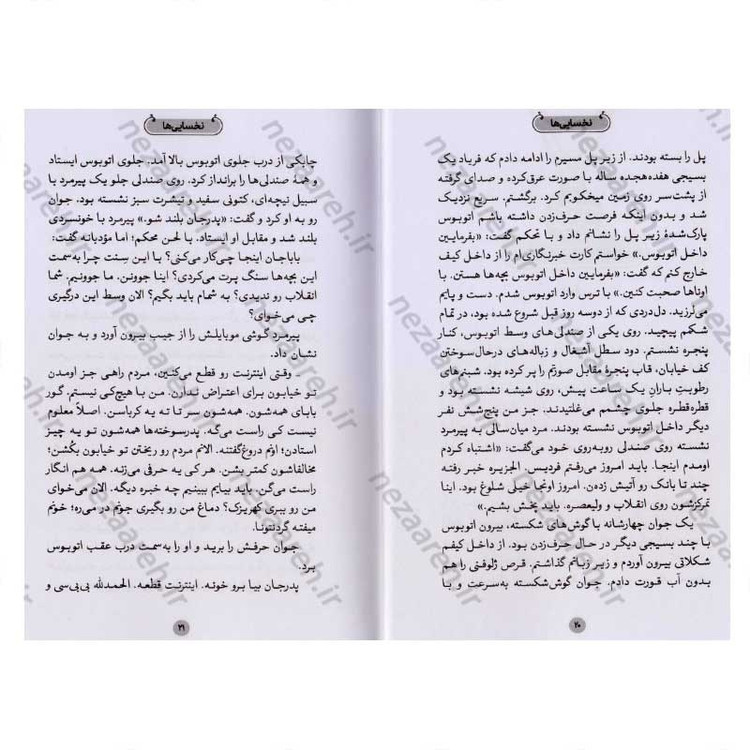 نخسایی‌ها
پل را بسته بودند. از زیر پل مسیرم را ادامه دادم که فریاد یک
بسیجی هفده‌هجده ساله با صورت عرق‌کرده و صدای گرفته
از پشت‌سر روی زمین میخکوبم کرد. برگشتم. سریع نزدیک
شد و بدون اینکه فرصت حرف‌زدن داشته باشم اتوبوس
پارک‌شدهٔ زیر پل را نشانم داد و با تحکم گفت: «بفرمایین
داخل اتوبوس.» خواستم کارت خبرنگاری‌ام را از داخل کیف
خارج کنم که گفت: «بفرمایین داخل اتوبوس بچه‌ها هستن. با
اوناها صحبت کنین.» با ترس وارد اتوبوس شدم. دست و پایم
می‌لرزید. دل‌دردی که از دوسه روز قبل شروع شده بود، در تمام
شکمم پیچید. روی یکی از صندلی‌های وسط اتوبوس، کنار
پنجره نشستم. دود سطل آشغال و زباله‌های درحال‌سوختن
کف خیابان، قاب پنجرهٔ مقابل صورتم را پر کرده بود. شبنم‌های
رطوبتِ بارانِ یک ساعت پیش، روی شیشه نشسته بود و
قطره‌قطره جلوی چشمم می‌غلتیدند. جز من پنج‌شش نفر
دیگر داخل اتوبوس نشسته بودند. مرد میان‌سالی به پیرمرد
نشسته روی صندلی روبه‌روی خود می‌گفت: «اشتباه کردم
اومدم اینجا. باید امروز می‌رفتم فردیس. الجزیره خبر رفته
چند تا بانک رو آتیش زده‌ن. امروز اونجا خیلی شلوغ بود. اینا
تمرکزشون روی انقلاب و ولیعصره. باید پخش بشیم.»
یک جوان چهارشانه با گوش‌های شکسته، بیرون اتوبوس
با چند بسیجی دیگر در حال حرف‌زدن بود. از داخل کیفم
شکلاتی بیرون آوردم و زیر زبانم گذاشتم. قرص ژلوفنی را هم
بدون آب قورت دادم. جوان گوش‌شکسته به‌سرعت و با
۲۰
نخسایی‌ها
چابکی از درب جلوی اتوبوس بالا آمد. جلوی اتوبوس ایستاد
و همهٔ صندلی‌ها را برانداز کرد. روی صندلی جلو یک پیرمرد با
سبیل نیچه‌ای، کتونی سفید و تیشرت سبز نشسته بود. جوان
رو به او کرد و گفت: «پدرجان بلند شو.» پیرمرد با خونسردی
بلند شد و مقابل او ایستاد. با لحن محکم؛ اما مؤدبانه گفت:
باباجان اینجا چی‌کار می‌کنی؟ با این سِنت چرا به‌سمت
این بچه‌ها سنگ پرت می‌کردی؟ اینا جوونن، ما جوونیم. شما
انقلاب رو ندیدی؟ به شمام باید بگیم؟ الان وسط این درگیری
چی می‌خوای؟
پیرمرد گوشی موبایلش را از جیب بیرون آورد و به جوان
نشان داد.
ـ وقتی اینترنت رو قطع می‌کنین، مردم راهی جز اومدن
تو خیابون برای اعتراض ندارن. من با هیچ‌کی نیستم. گور
بابای همه‌شون. همه‌شون سر تا ته یه کرباسن. اصلاً معلوم
نیست کی راست می‌گه. پدرسوخته‌ها همه‌شون تو یه چیز
استادن؛ اونم دروغ‌گفتنه. الانم مردم رو ریختن تو خیابون بکُشن؛
مخالفاشون کمتر بشن. هر کی یه حرفی می‌زنه. همه هم انگار
راست می‌گن. باید بیایم ببینیم چه خبره دیگه. الان می‌خوای
من رو ببری کهریزک؟ دماغ من رو بگیری جونم در می‌ره؛ خونم
میفته گردنتونا.
جوان حرفش را برید و او را به‌سمت درب عقب اتوبوس
برد.
ـ پدرجان بیا برو خونه. اینترنت قطعه. الحمدلله بی‌بی‌سی و
۲۱
nezaareh.ir